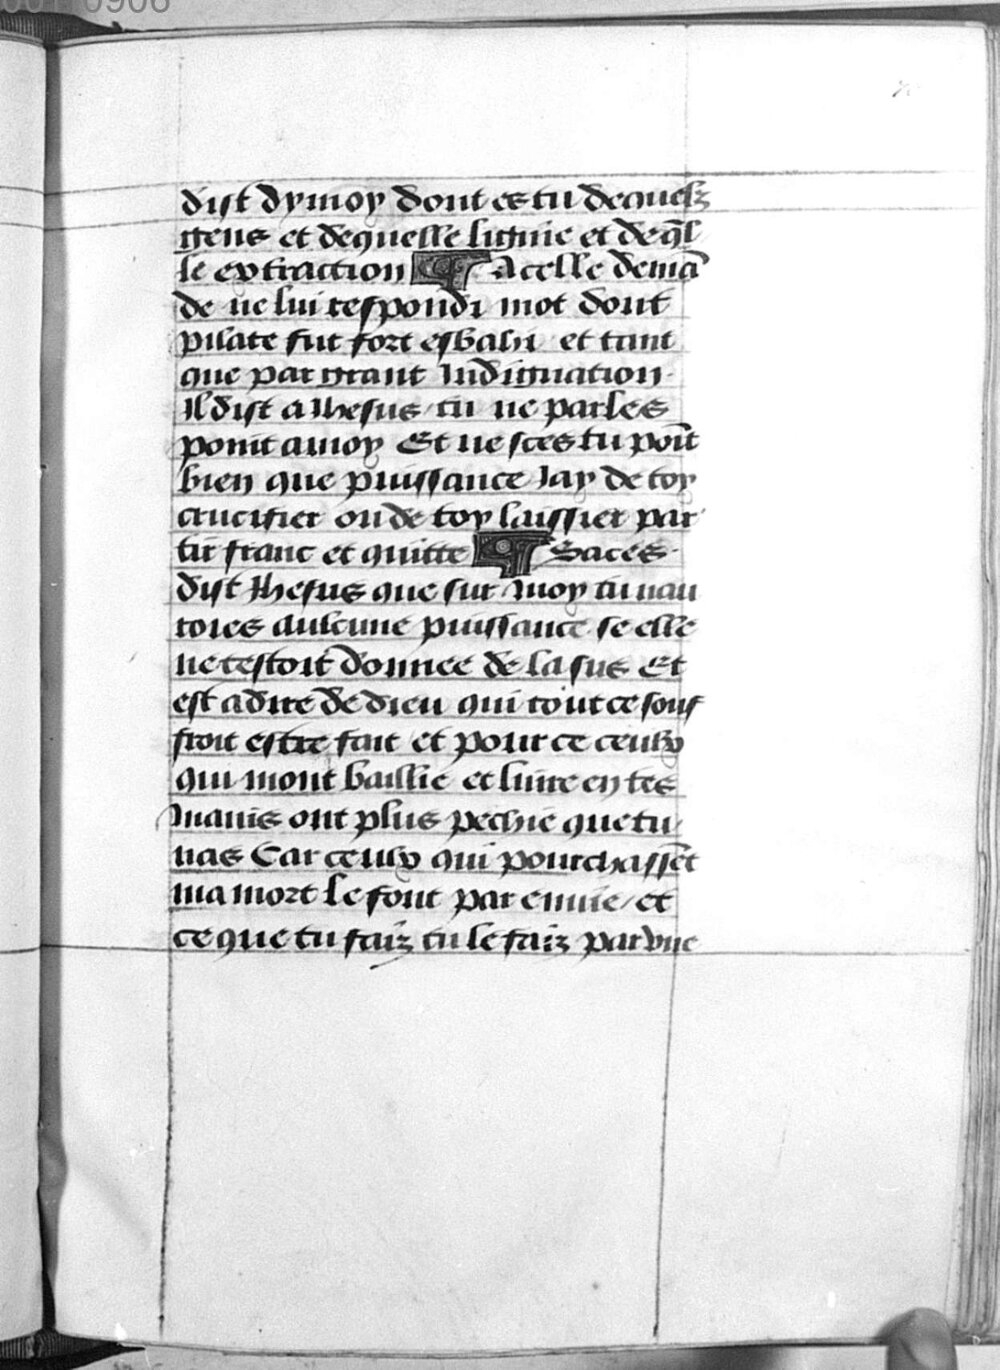 dist dymoy dont es tu de quelz
gens et de quelle lignie et de q̃l
le extraction ¶ A celle demã
de ne lui respondi mot dont
pilate fut fort esbahi et tant
que par grant Indignation
Il dist a Ihesus / tu ne parles
point a moy Et ne sces tu point
bien que puissance Jay de toy
crucifier ou de toy laissier par
tir franc et quitte ¶ Saces
dist Ihesus que sur moy tu nau
roies aulcune puissance se elle
ne testoit donnee de la sus Et
est a dire de dieu qui tout ce souf
froit estre fait et pour ce ceulx
qui mont baillie et liure en tes
mains ont plus pechie que tu
nas Car ceulx qui pourchassẽt
ma mort le font par enuie / et
ce que tu faiz tu le faiz par vne